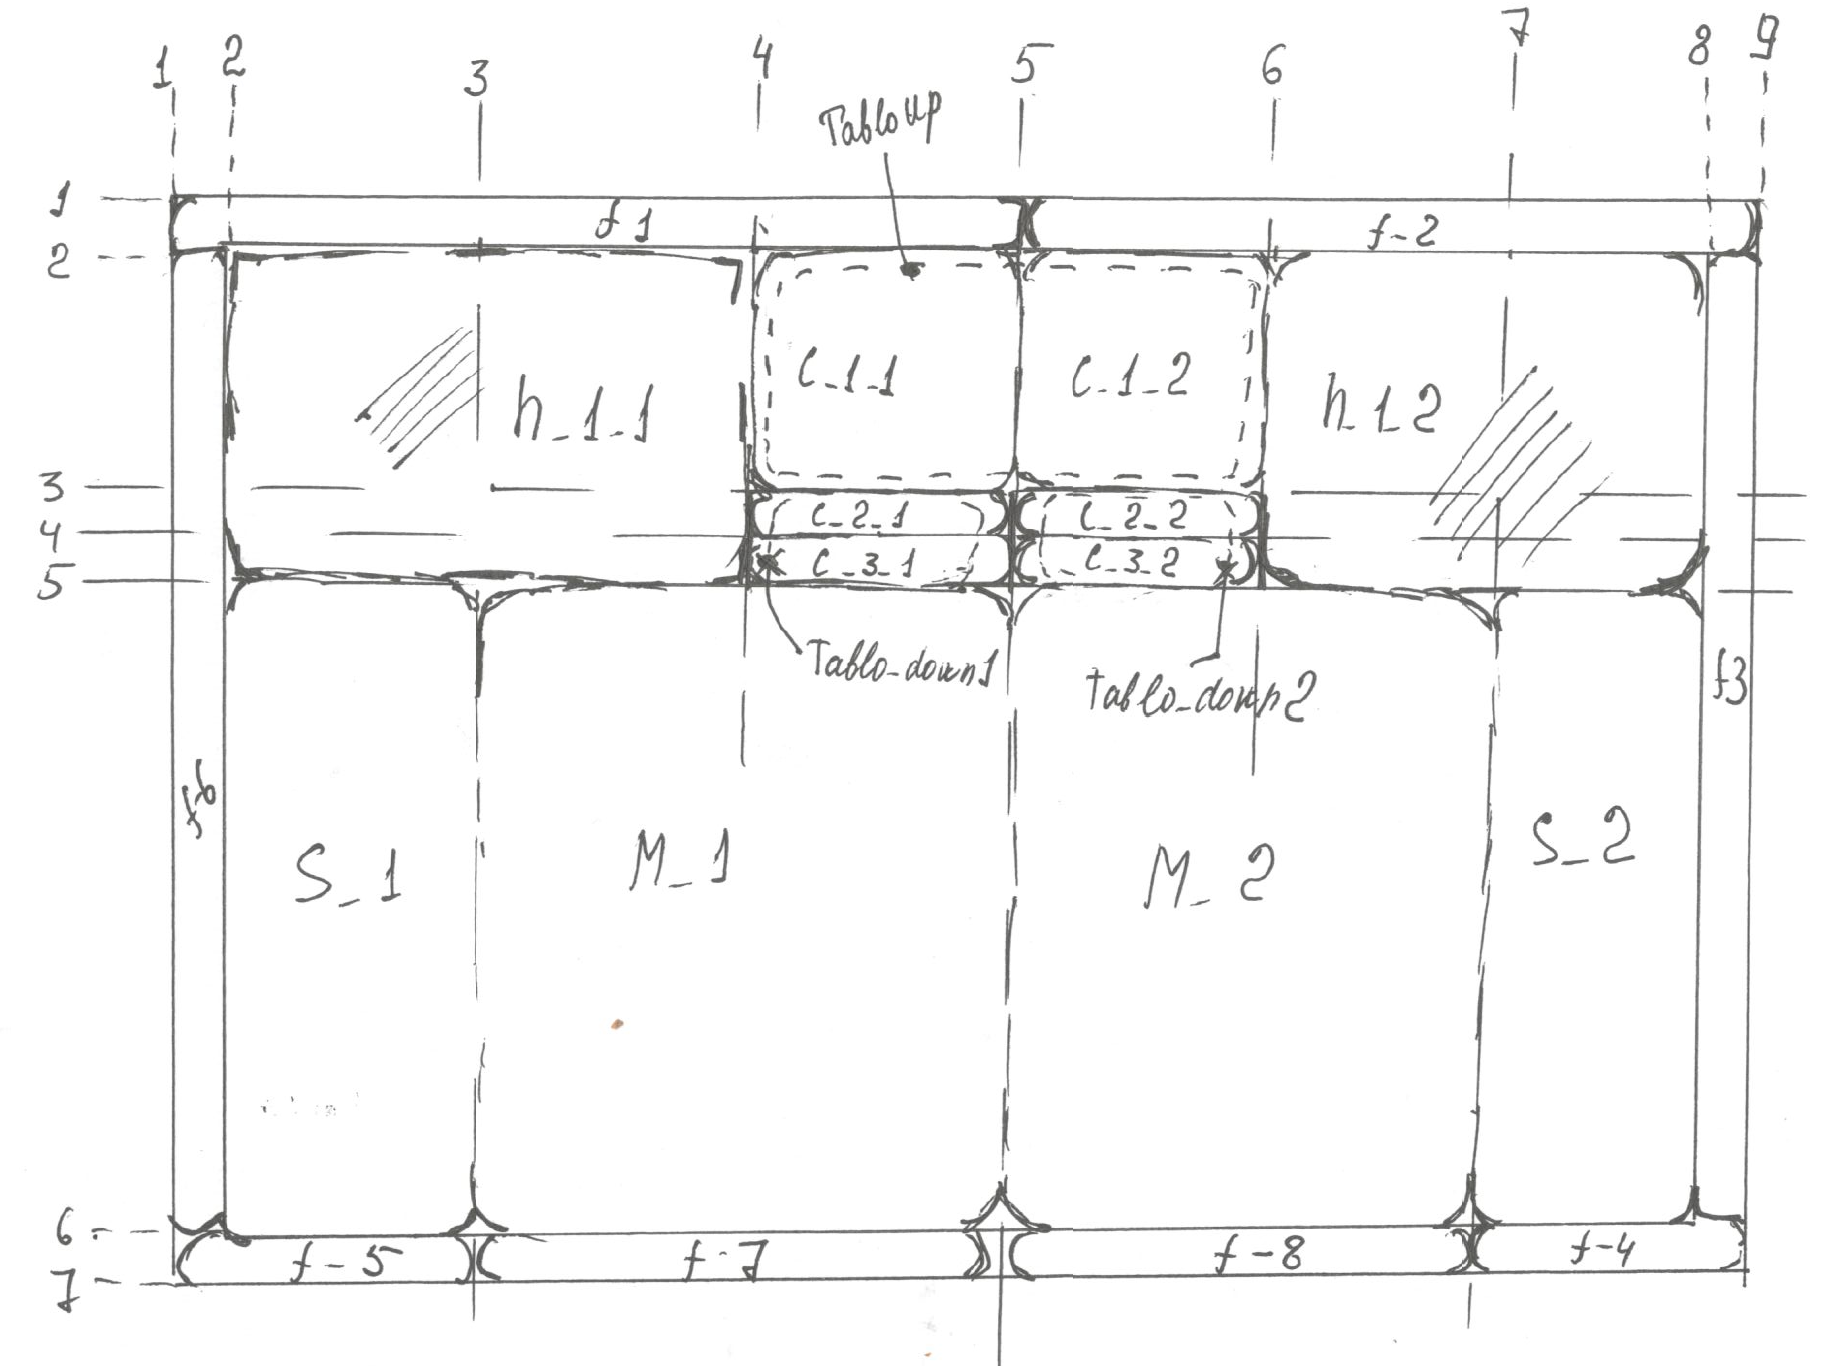 1 2 3 4 5 6 7 8 9
Tablo up
1
f 1
f-2
2
C_1_1
C_1_2
h_1_1
h_1_2
3
C_2_1
C_2_2
4
C_3_1
C_3_2
5
Tablo_down1
Tablo_down2
f3
f6
S_1
M_1
M_2
S_2
6
f-5
f-7
f-8
f-4
7